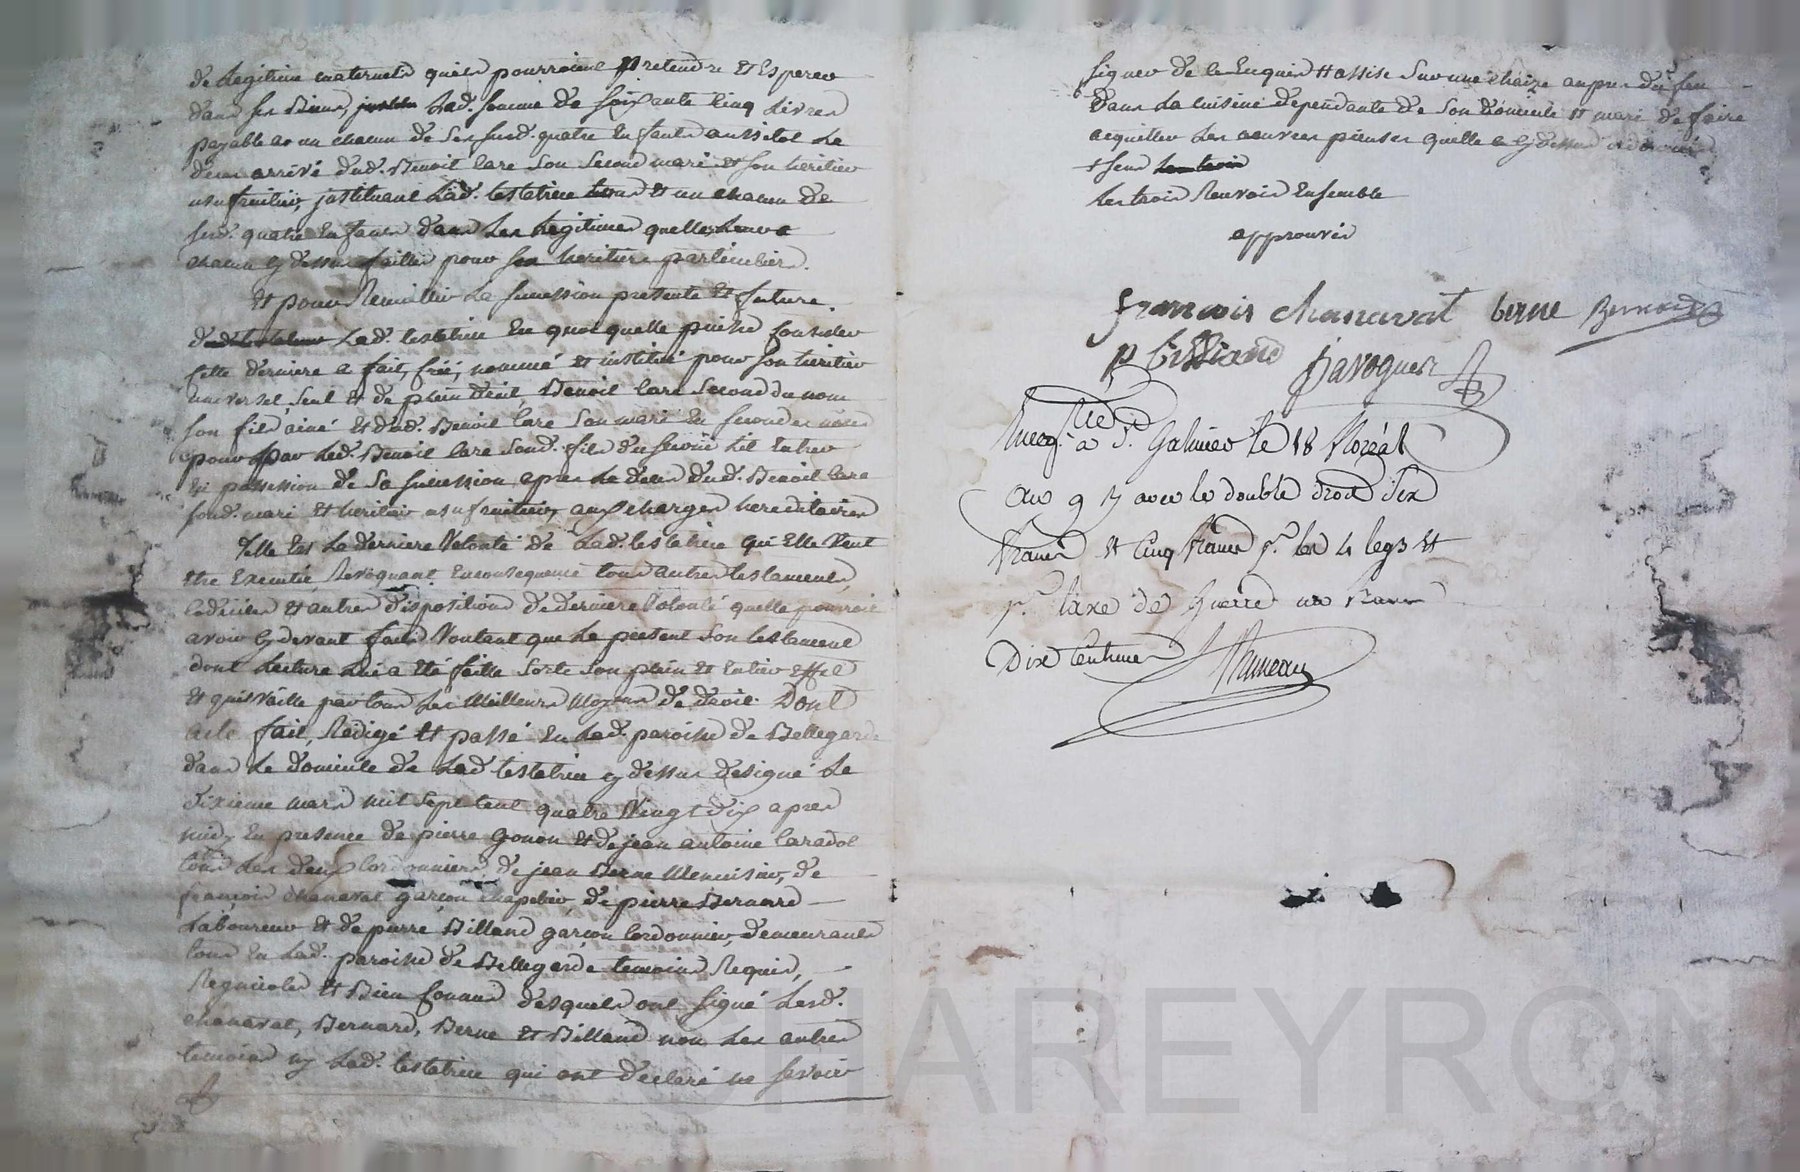 de Legitime maternelle quils pourroient pretendre et Esperer
dans ses Biens, Lad. somme de soixante Cinq Livres
payable a un chacun de ses susd. quatre Enfants aussitot Le
deces arrivé dud. Benoit Care son second mari et son heritier
usufruitier, jnstituant Lad. testatrice un chacun de
sesd. quatre Enfans dans Les Legitimes quelle Leur a
chacun cy dessus faittes pour ses heritiers particuliers.
Et pour Recueillir La succession presente et future
Lad. testatrice En quoi quelle puisse consister
cette derniere a fait, créé, nommé et institué pour son heritier
universel, seul et de plein droit, Benoit Care second du nom
son fils ainé et dud. Benoit Care son mari En secondes noces
pour par led. Benoit Care sond. fils du second Lit Entrer
En possession de sa succession apres Le deces dud. Benoit Care
sond. mari et heritier usufruitier, aux charges hereditaires
Telle Est La derniere Volonté de Lad. testatrice qu'Elle Veut
etre Executée, Revoquant Enconsequence tous autres testaments,
Codiciles et autres dispositions de derniere Volonté quelle pourroit
avoir cy devant faits Voulant que Le present son testament
dont Lecture Lui a été faitte sorte son plein et Entier effet
et quil Vaille par tous Les Meilleurs Moyens de droit. Dont
acte fait, Redigé et passé En Lad. paroisse de Bellegarde
dans Le domicile de Lad. testatrice cy dessus designé Le
dixieme mars mil sept cent quatre Vingt dix apres
midy En presence de pierre Gonon et de jean antoine Caradot
tous Les deux Cordonniers, de jean Berne Menuisier, de
françois chanavat garçon chapelier, de pierre Bernard
Laboureur et de pierre Billand garçon Cordonnier, demeurants
tous En Lad. paroisse de Bellegarde temoins Requis,
Regnicoles et Bien Connus desquels ont signé Lesd.
chanavat, Bernard, Berne et Billand non Les autres
temoins ny Lad. testatrice qui ont declaré ne scavoir
signer de ce Enquis et assise sur une chaize aupres du feu
dans La cuisine dependante de Son domicile et mari de faire
acquitter Les oeuvres pieuses quelle a cy dessus
Les trois Renvois Ensemble
approuvés
françois chanavat berne Bernard
p Billand Javogues
Enreg.tré a St. Galmier le 18 floréal
an 9 avec le double droit Six
francs et Cinq francs pr. les 4 legs et
pr. taxe de Guerre un franc
Dix Centimes
CHAREYRON